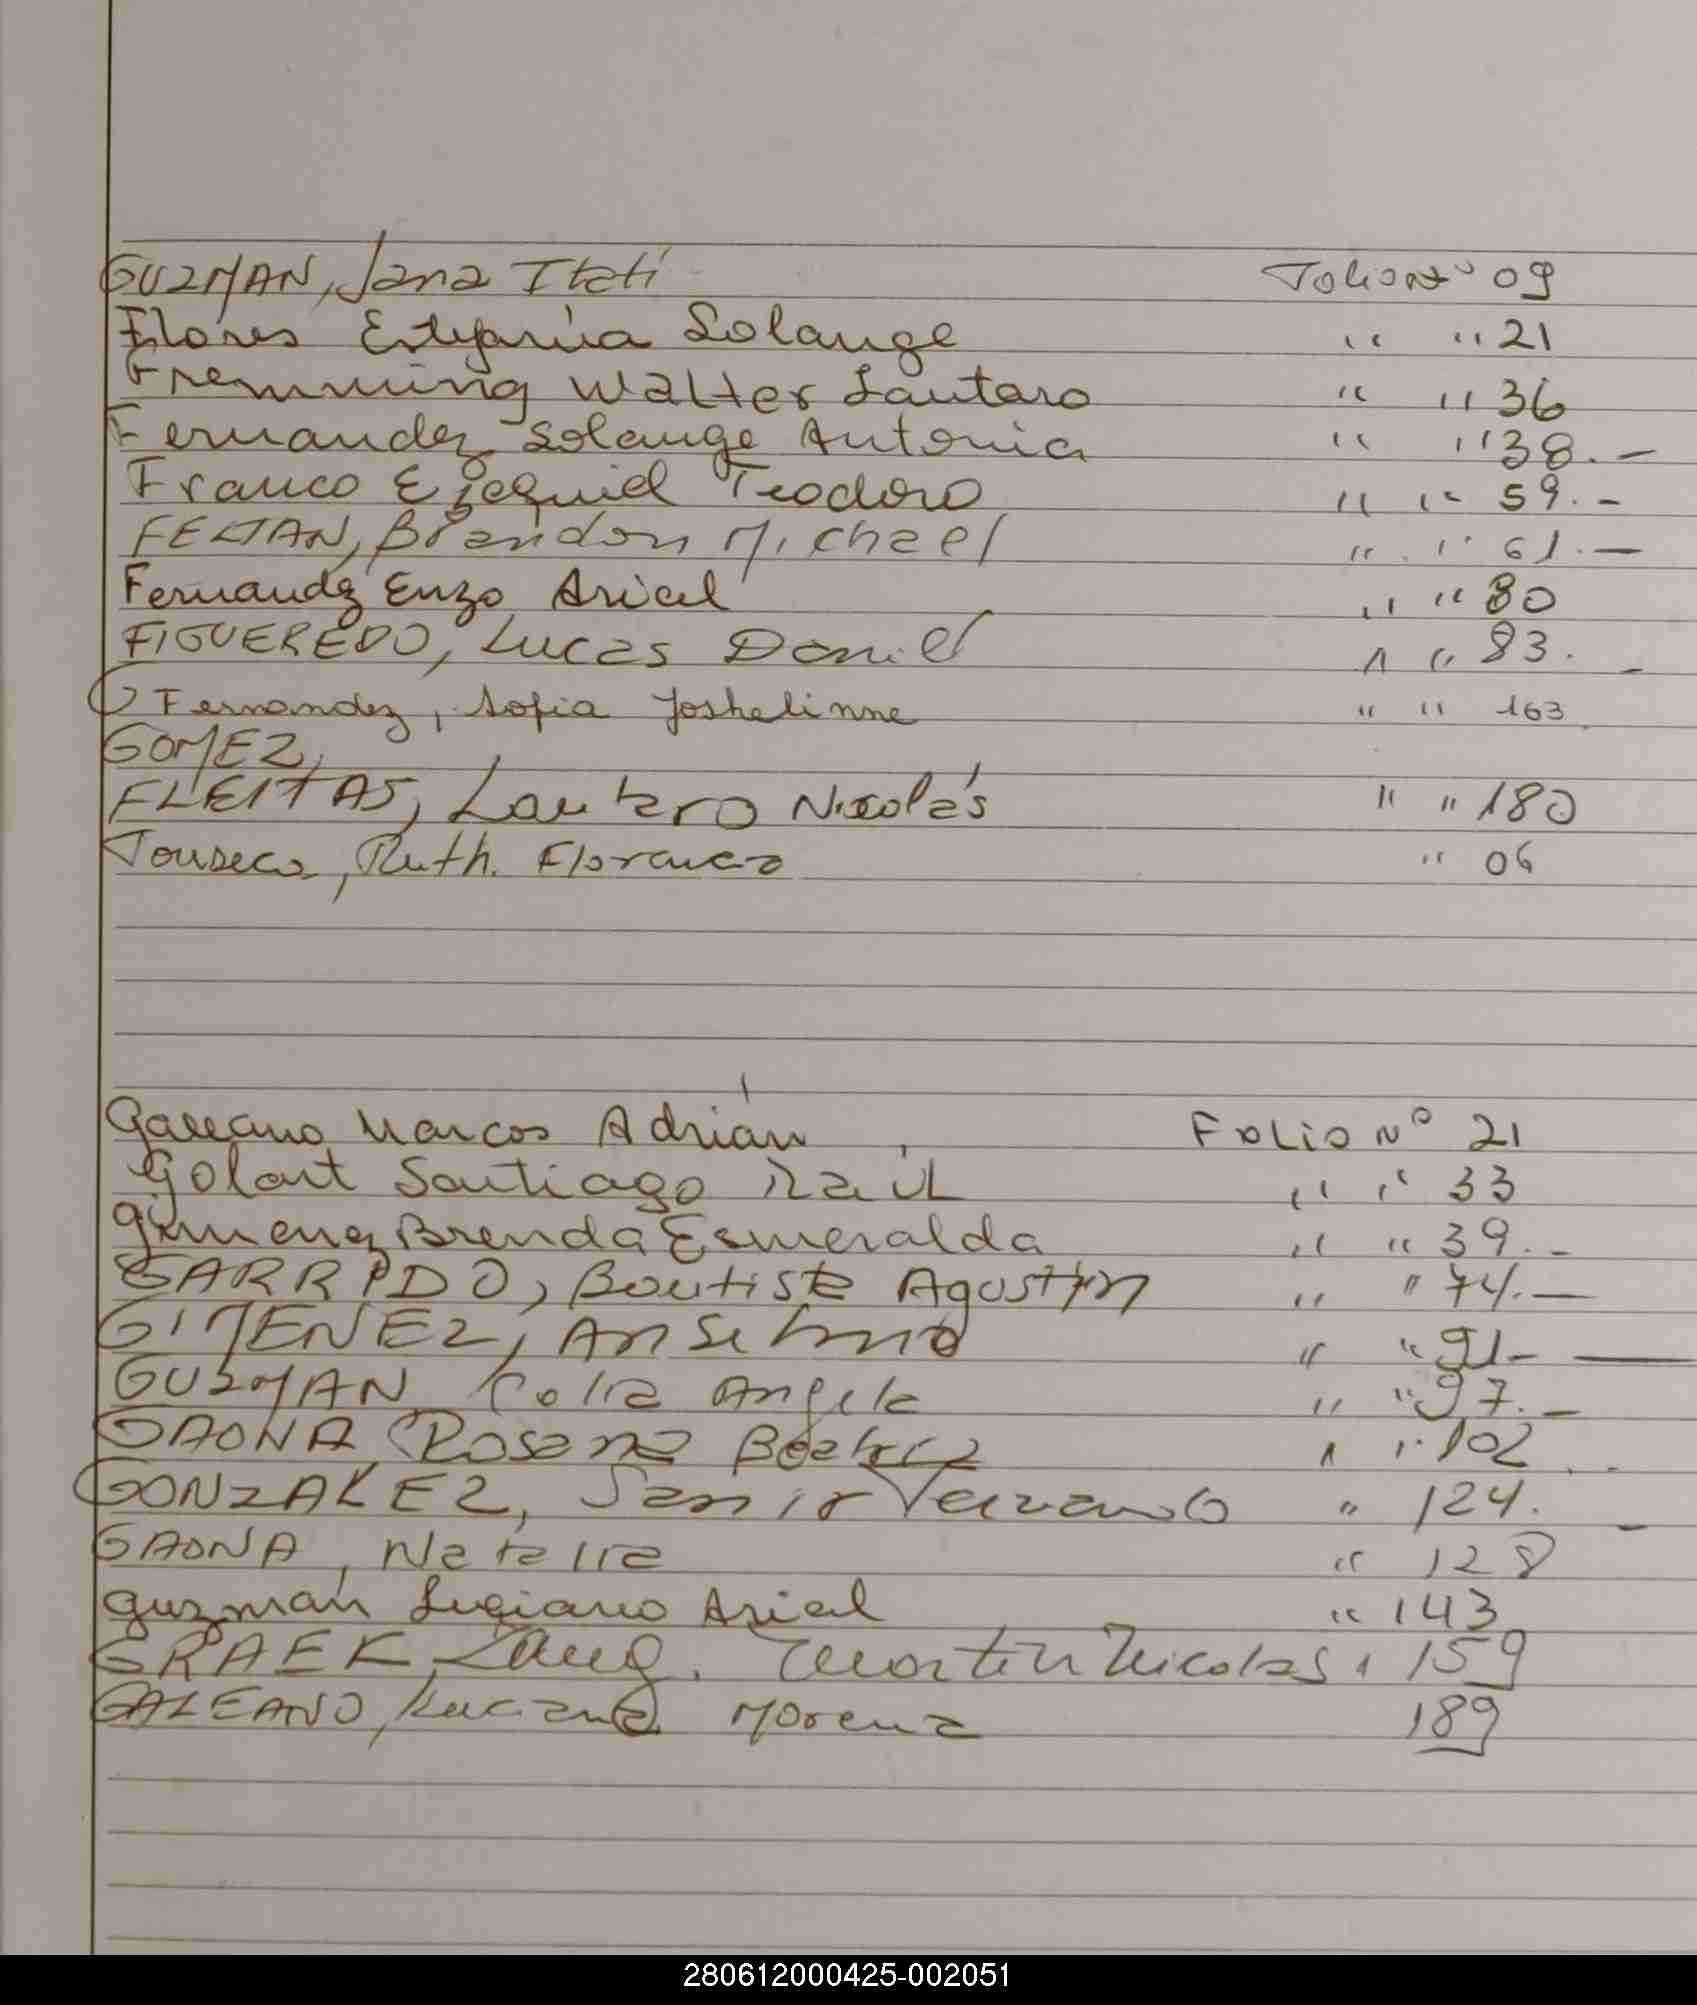 GUZMAN, Jana Itati Folio Nº 09
Flores Estefania Solange " " 21
Fremming Walter Lautaro " " 36
Fernandez Solange Antonia " " 38.-
Franco Ezequiel Teodoro " " 59.-
FELTAN, Brandon Michael " " 61.-
Fernandez Enzo Ariel " " 80
FIGUEREDO, Lucas Daniel " " 83.-
Fernandez, Sofia Joshelinne " " 163
GOMEZ,
FLEITAS, Lautaro Nicolás " " 180
Fonseca, Ruth. Florencia " 06
Galeano Marcos Adrián Folio Nº 21
Golart Santiago Raúl " " 33
Gimenez Brenda Esmeralda " " 39.-
GARRIDO, Bautista Agostin " " 74.-
GIMENEZ, Anselmo " " 91-
GUZMAN Celia Angela " " 97.-
GAONA Rosana Beatriz " " 102
GONZALEZ, Samir Fernando " 124.-
GAONA, Natalia " 128
Guzmán Luciano Ariel " 143
GRAEF, Martin Nicolas " 159
GALEANO, Luciana Morena 189
280612000425-002051